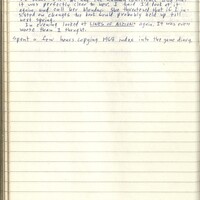 it was perfectly clear to me. I said I'd look at it
again, and call her Monday. She threatened that if I in-
sisted on changes the book would probably held up till
next spring.
In evening looked at again. It was even
worse than I thought.
Spent a few hours copying index into the year diary